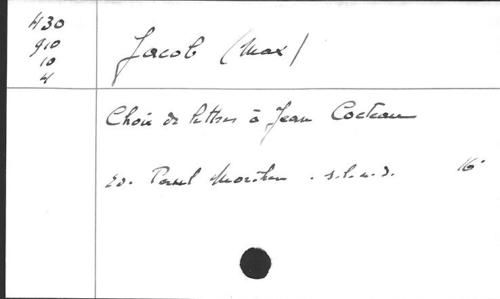 430
910
10
4
Jacob (Max)
Choix de lettres à Jean Cocteau
Ed. Paul Morihien . s.l.n.d. 16°